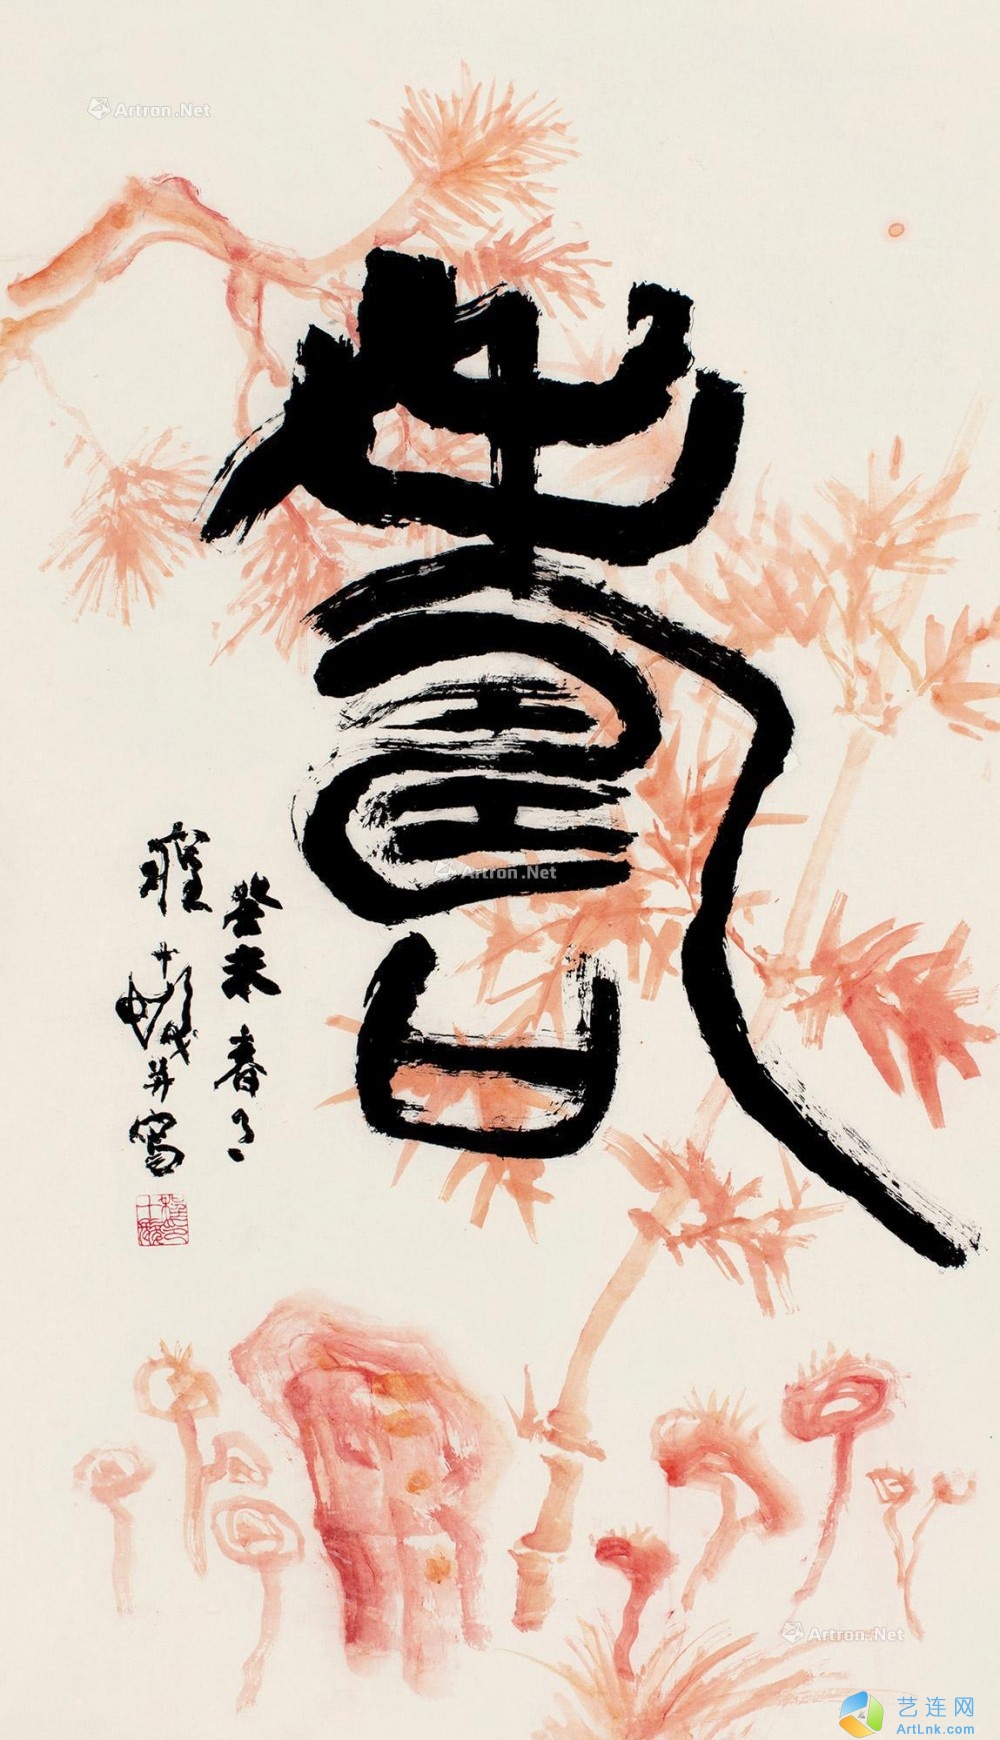 Artron.Net
壽
癸未春月
程十髮并寫
Artron.Net
Artron.Net
艺连网
ArtLnk.com